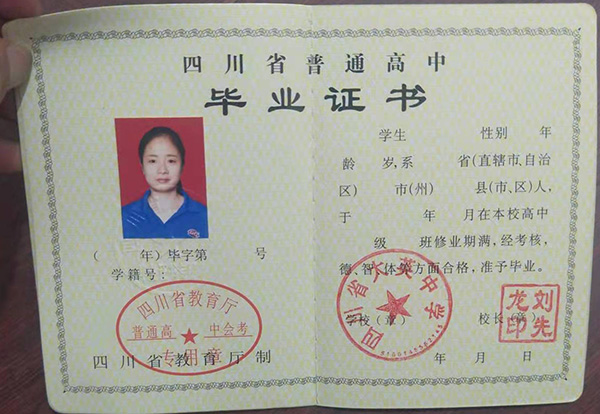 四川省普通高中
毕业证书
( 年)毕字第 号
学籍号:
四川省教育厅
普通高 中会考
专用章
四川省教育厅制
学生 性别 年
龄 岁,系 省(直辖市、自治
区) 市(州) 县(市、区)人,
于 年 月在本校高中
级 班修业期满,经考核,
德、智、体等方面合格,准予毕业。
四川省大英中学
学校(章) 校长(章)
刘先
龙印
年 月 日